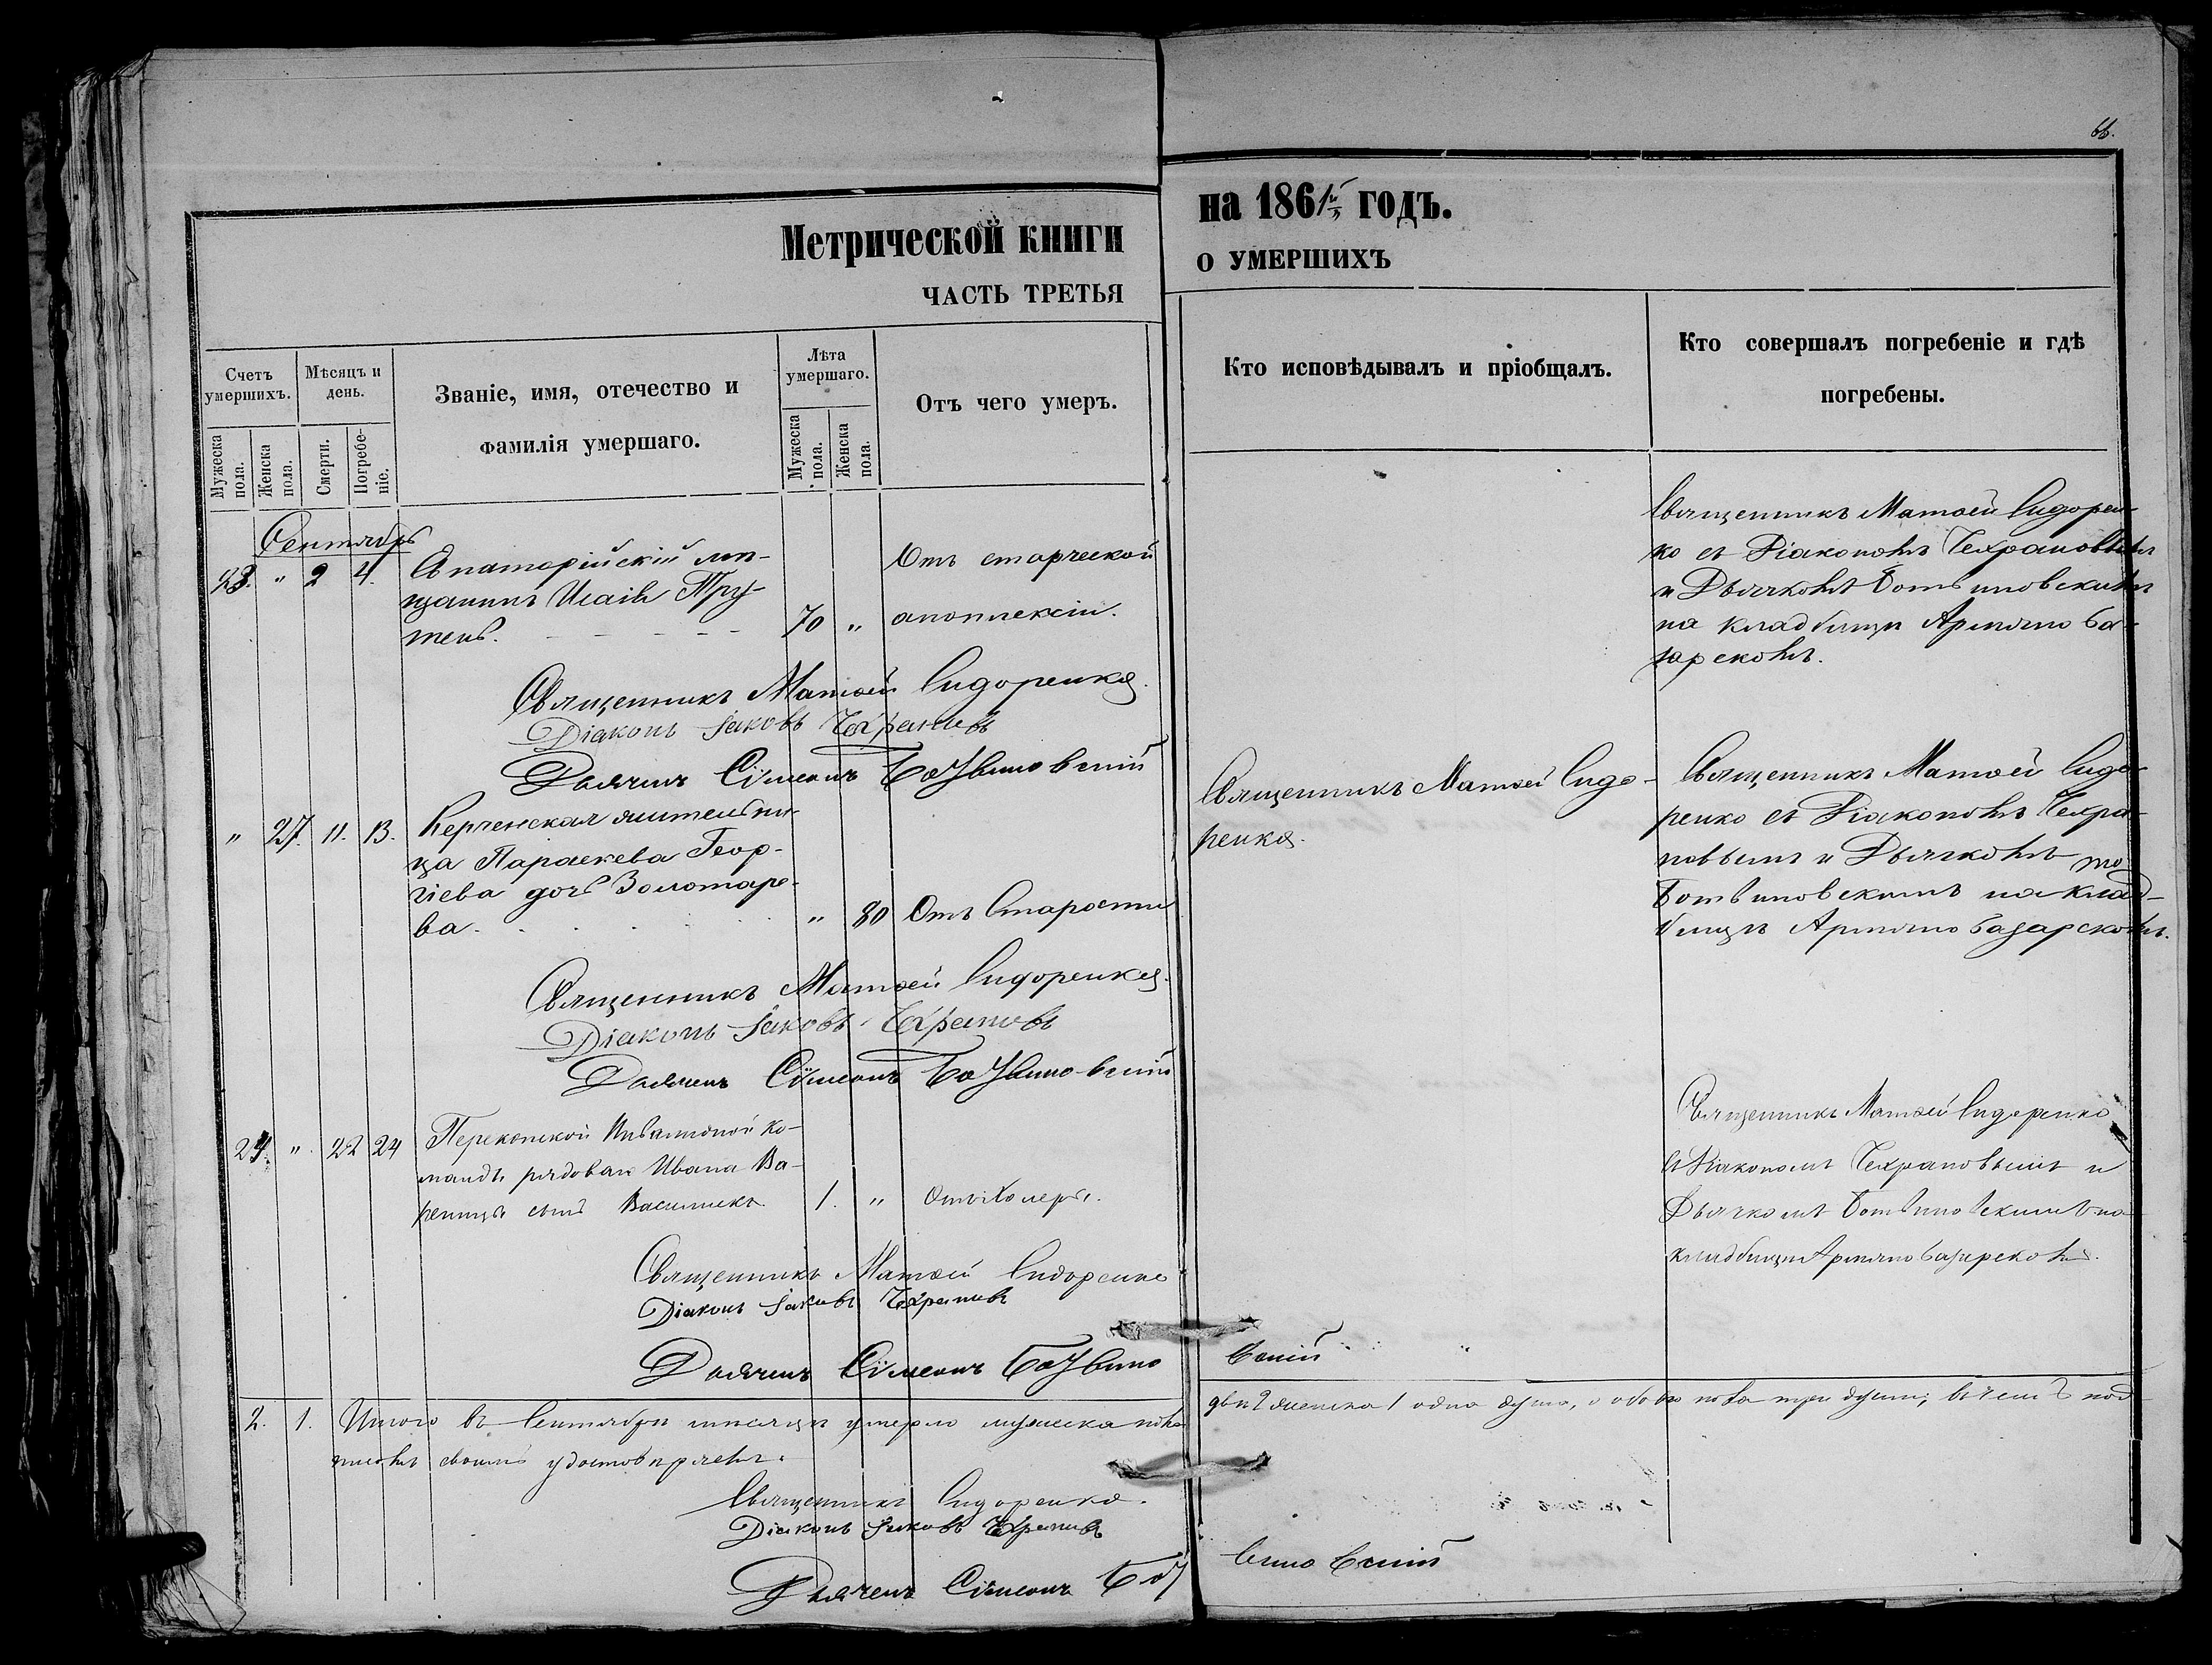 66.
Метрической книги
на 1861й годъ.
ЧАСТЬ ТРЕТЬЯ
О УМЕРШИХЪ
Счетъ умершихъ.
Мужеска пола.
Женска пола.
Мѣсяцъ и день.
Смерти.
Погребеніе.
Званіе, имя, отечество и
фамилія умершаго.
Лѣта умершаго.
Мужеска пола.
Женска пола.
Отъ чего умеръ.
Кто исповѣдывалъ и пріобщалъ.
Кто совершалъ погребеніе и гдѣ
погребены.
Сентябрь
23. " 2 4. Евпаторійскій мѣ-
щанинъ Исаія Тру-
тень. 70 "
Отъ старческой
апоплексіи.
Священникъ Матѳей Сидорен-
ко съ Діакономъ Чехрановымъ
и Дьячкомъ Ботвиновскимъ
на кладбищѣ Армяно Ба-
зарскомъ.
Священникъ Матѳей Сидоренко.
Діаконъ Іаковъ Чехрановъ
Дьячекъ Сѵмеонъ Ботвиновскій
" 27. 11. 13. Керченская жительни-
ца Параскева Геор-
гіева дочь Золотаре-
ва. " 80 Отъ Старости
Священникъ Матѳей Сидо-
ренко.
Священникъ Матѳей Сидо-
ренко съ Діакономъ Чехра-
новымъ и Дьячкомъ
Ботвиновскимъ на клад-
бищѣ Армяно Базарскомъ.
Священникъ Матѳей Сидоренко.
Діаконъ Іаковъ Чехрановъ
Дьячекъ Сѵмеонъ Ботвиновскій
24. " 22 24 Перекопской Инвалидной Ко-
манды рядоваго Ивана Ва-
реницы сынъ Василий 1. " Отъ Холеры.
Священникъ Матѳей Сидоренко
съ Діакономъ Чехрановымъ и
Дьячкомъ Ботвиновскимъ на
кладбищѣ Армяно Базарскомъ.
Священникъ Матѳей Сидоренко
Діаконъ Іаковъ Чехрановъ
Дьячекъ Сѵмеонъ Ботвиновскій
2. 1. Итого въ Сентябрѣ мѣсяцѣ умерло мужеска пола двѣ 2 женска 1 одна душа, а обоего пола три души; въ чемъ под-
писомъ своимъ удостовѣряемъ.
Священникъ Сидоренко.
Діаконъ Іаковъ Чехрановъ
Дьячекъ Сѵмеонъ Ботвиновскій